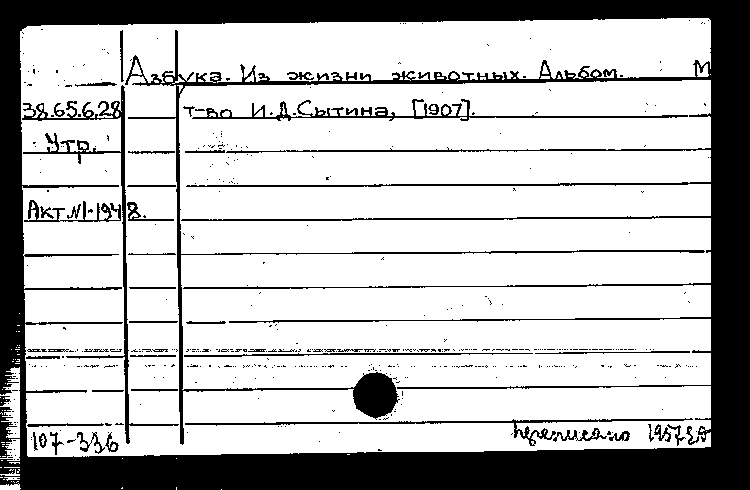 Азбука. Из жизни животных. Альбом. М
38.65.6.28 т-во И.Д.Сытина, [1907].
Утр.
Акт №1-1948.
107-336
переписано 1957